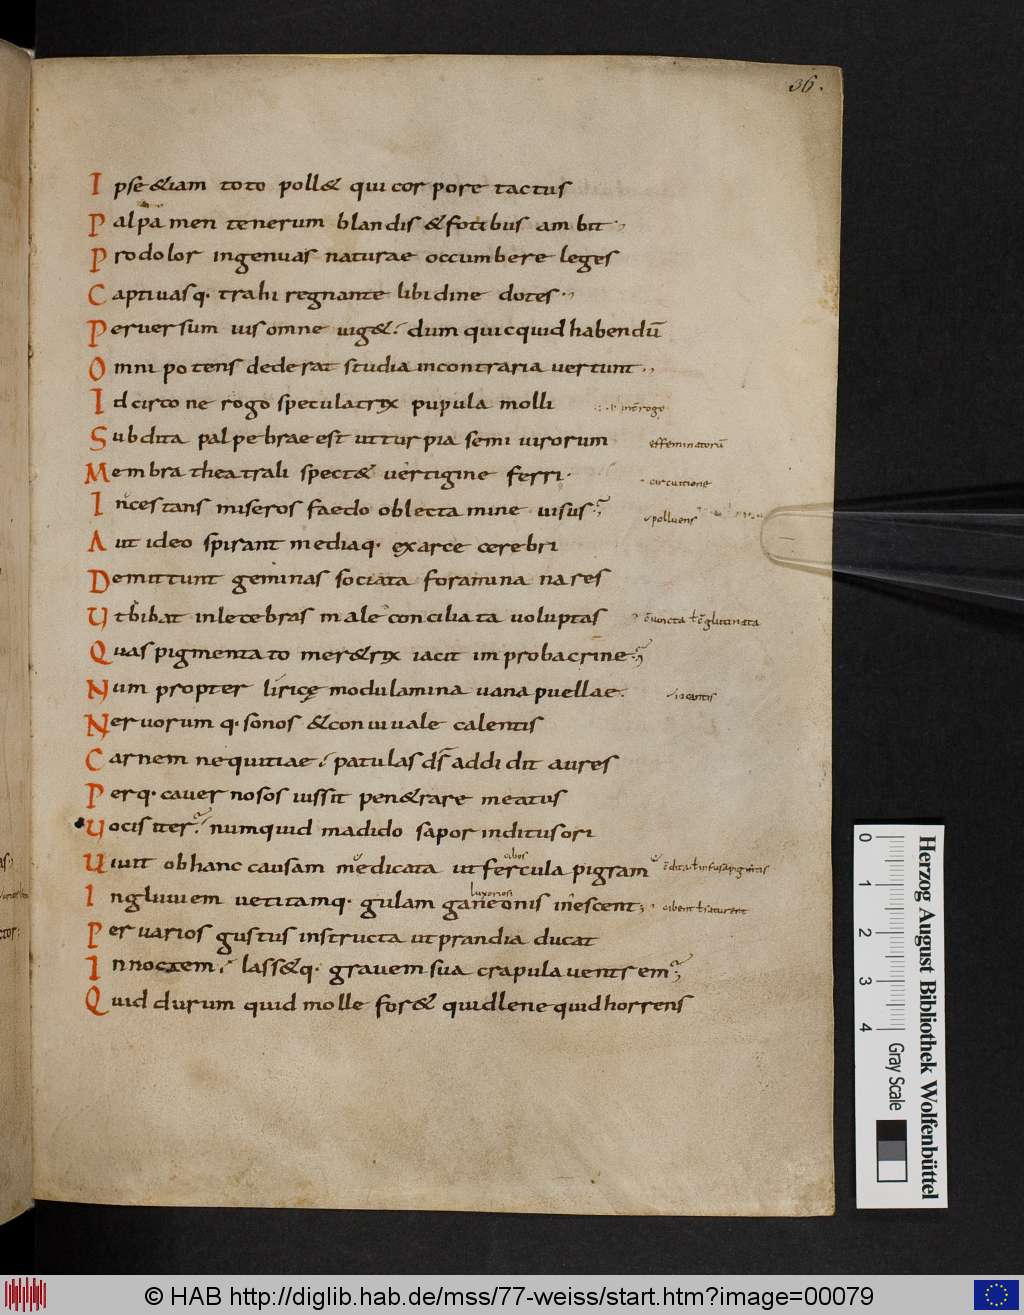 36.
Ipse &iam toto poll& qui corpore tactus
Palpamen tenerum blandis & fotibus ambit
Pro dolor ingenuas naturae occumbere leges
Captivasq· trahi regnante libidine dotes·
Perversum uis omne uig& dum quicquid habendū
Omnipotens dederat studia in contraria vertunt
Idcirco ne rogo speculatrix pupula molli
Subdita palpebrae est ut turpia semivirorum effeminatorū
Membra theatrali spect& vertigine ferri· circuitione
Incestans miseros faedo oblectamine visus polluens
Aut ideo spirant mediaq· ex arce cerebri
Demittunt geminas sociata foramina nares
Ut bibat inlecebras male conciliata voluptas
Quas pigmentato mer&rix iacit improba crine
Num propter liricę modulamina vana puellae
Nervorumq· sonos & convivale calentis
Carnem nequitiae patulas ds̄ addidit aures
Perq· cavernosos iussit pen&rare meatus
Vocis iter numquid madido sapor inditus ori
Vivit ob hanc causam medicata ut fercula pigram
Ingluviem vetitamq· gulam ganeonis inescent
Per varios gustus instructa ut prandia ducat
In noctem lass&q· gravem sua crapula ventrem
Quid durum quid molle for& quid lene quid horrens
0 1 2 3 4
Gray Scale
Herzog August Bibliothek Wolfenbüttel
© HAB http://diglib.hab.de/mss/77-weiss/start.htm?image=00079